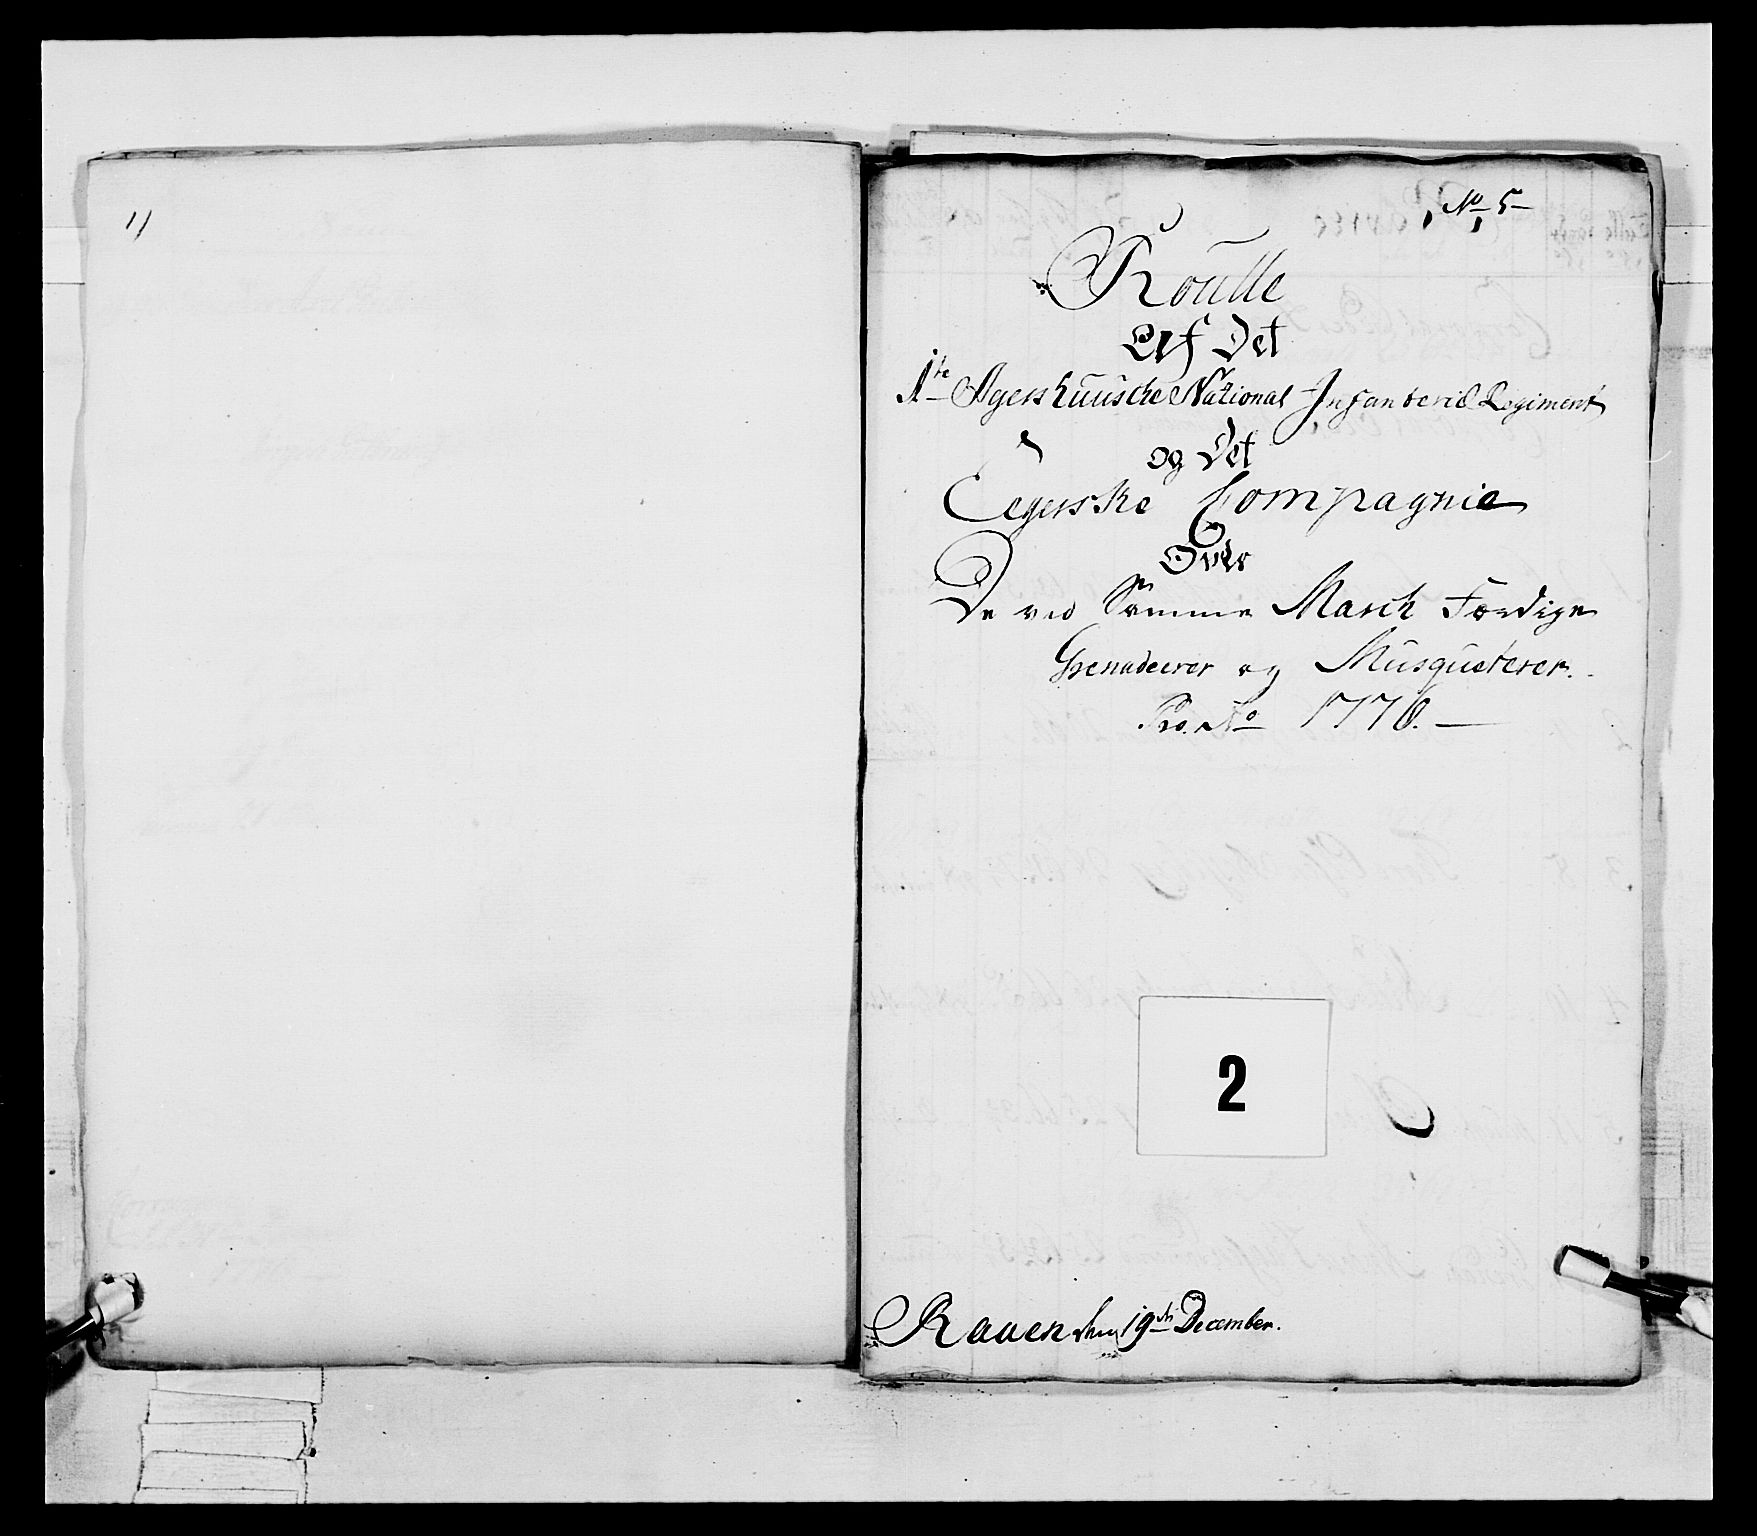 11
No 5
Roulle
Af Det
1te Agershuusche National Infanterie Regiment
og Det
Eegerske Compagnie
Over
De ved Samme March Færdige
Grenadeerer og Musqueterer.
Pro. Ao 1776.
2
Raaen den 19de December.